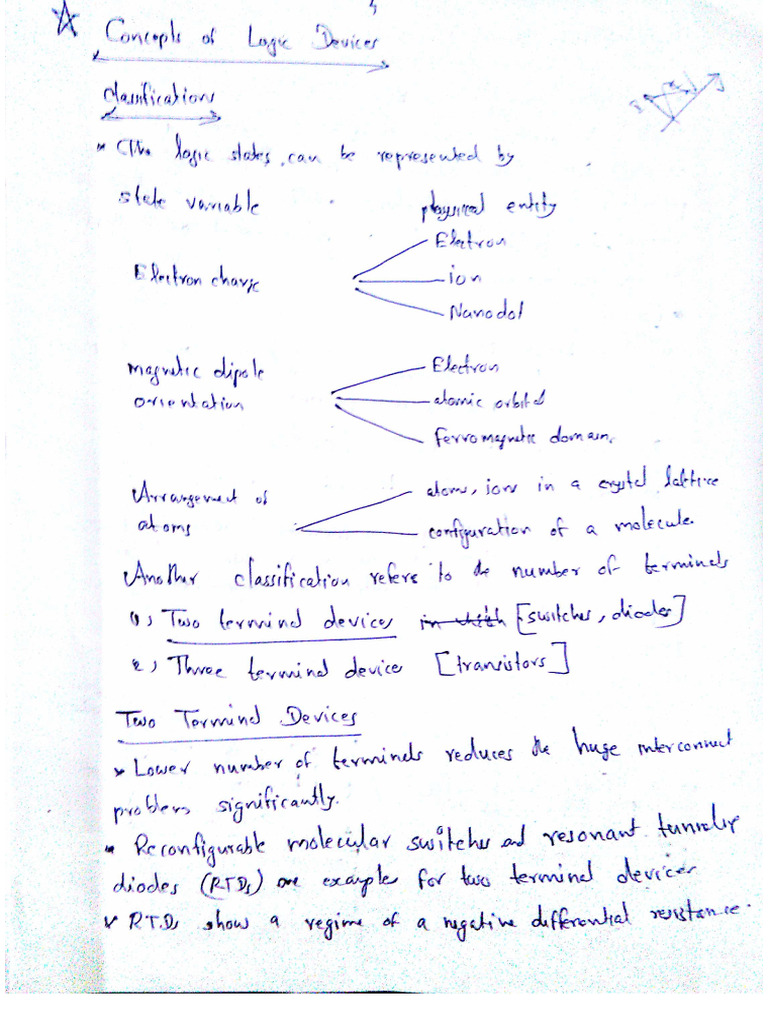 Concepts of Logic Devices
Classifications
* The logic states can be represented by
state variable physical entity
Electron
Electron charge ion
Nanodot
magnetic dipole Electron
orientation atomic orbital
ferromagnetic domain.
Arrangement of atoms, ions in a crystal lattice
atoms configuration of a molecule.
Another classification refers to the number of terminals
1, Two terminal devices in which [switches, diodes]
2, Three terminal device [transistors]
Two Terminal Devices
* Lower number of terminals reduces the huge interconnect
problem significantly.
* Reconfigurable molecular switches and resonant tunneling
diodes (RTDs) are example for two terminal devices
* RTDs show a regime of a negative differential resistance.